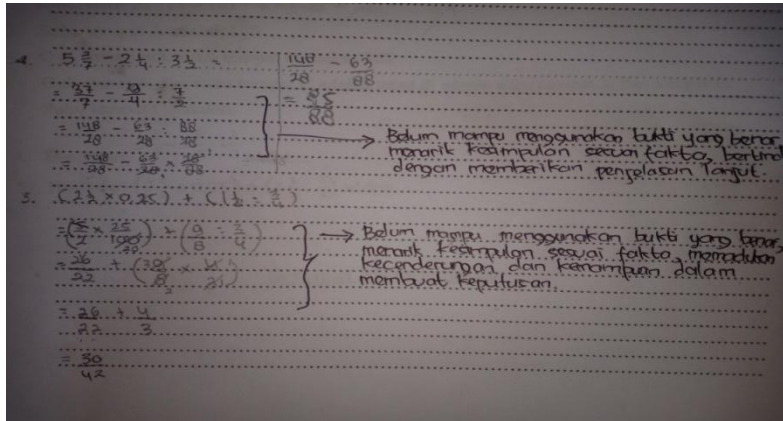 4. 5 2/7 - 2 1/4 : 3 1/2 =
= 37/7 - 9/4 : 7/2
= 148/28 - 63/28 : 88/28
= 148/28 - 63/28 × 28/88
148/28 - 63/88
= 85/88
Belum mampu menggunakan bukti yang benar,
menarik kesimpulan sesuai fakta, bertind
dengan memberikan penjelasan lanjut.
5. (2 1/2 × 0,25) + (1 1/8 : 3/4)
= (5/2 × 25/100) + (9/8 : 3/4)
= 26/22 +
= 26/22 + 4/3
= 30/42
Belum mampu menggunakan bukti yang benar,
menarik kesimpulan sesuai fakta, memadukan
kecenderungan dan kemampuan dalam
membuat keputusan.